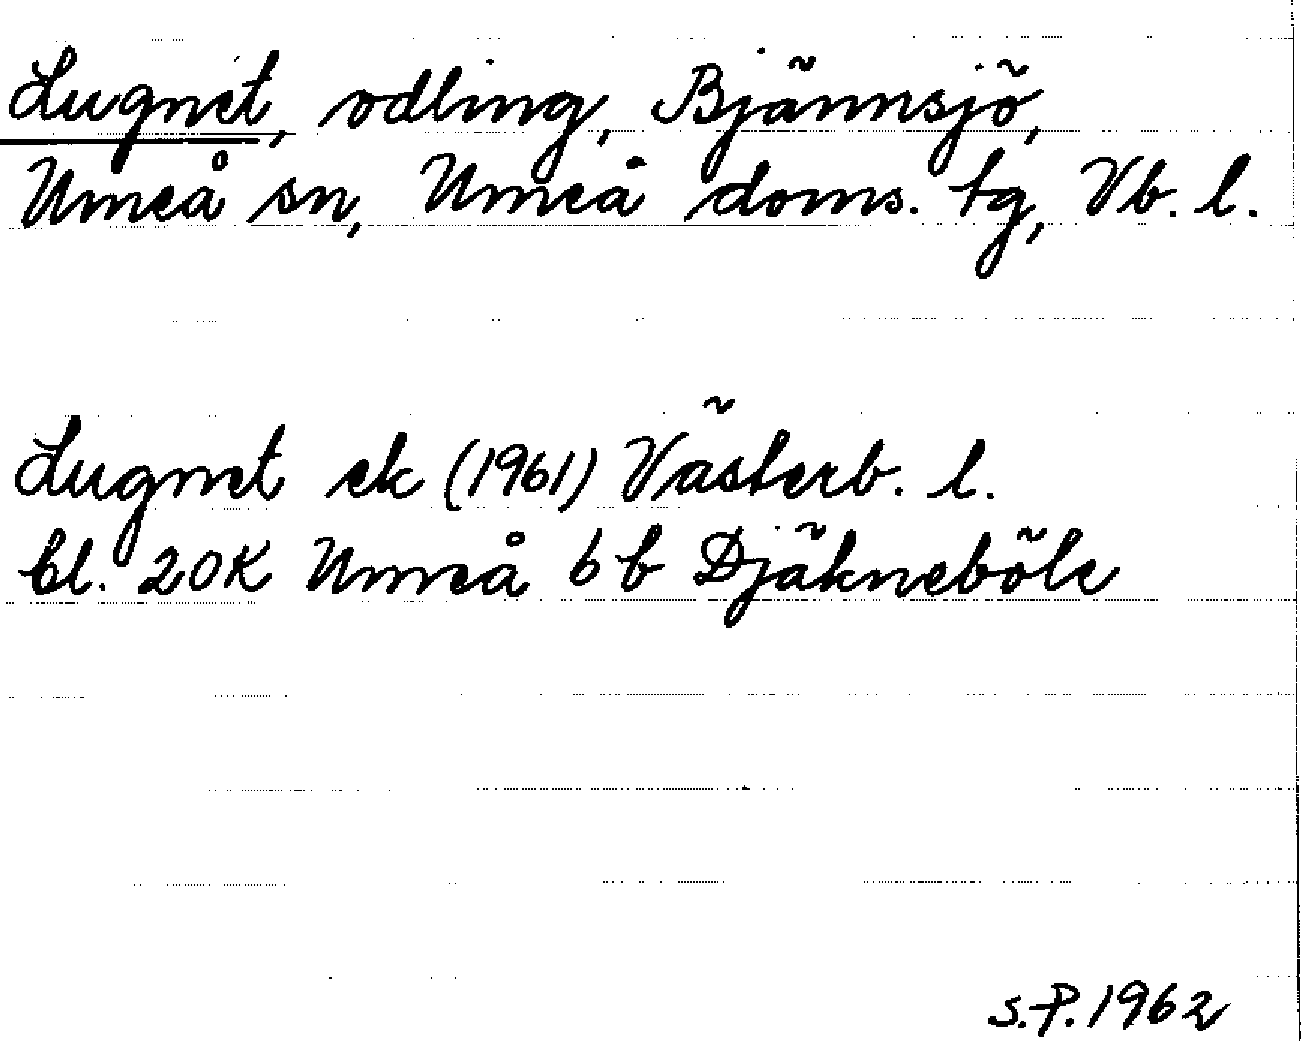 Lugnet, odling, Bjännsjö,
Umeå sn, Umeå doms. tg, Vb. l.
Lugnet ek (1961) Västerb. l.
bl. 20K Umeå 6b Djäkneböle
S.P. 1962